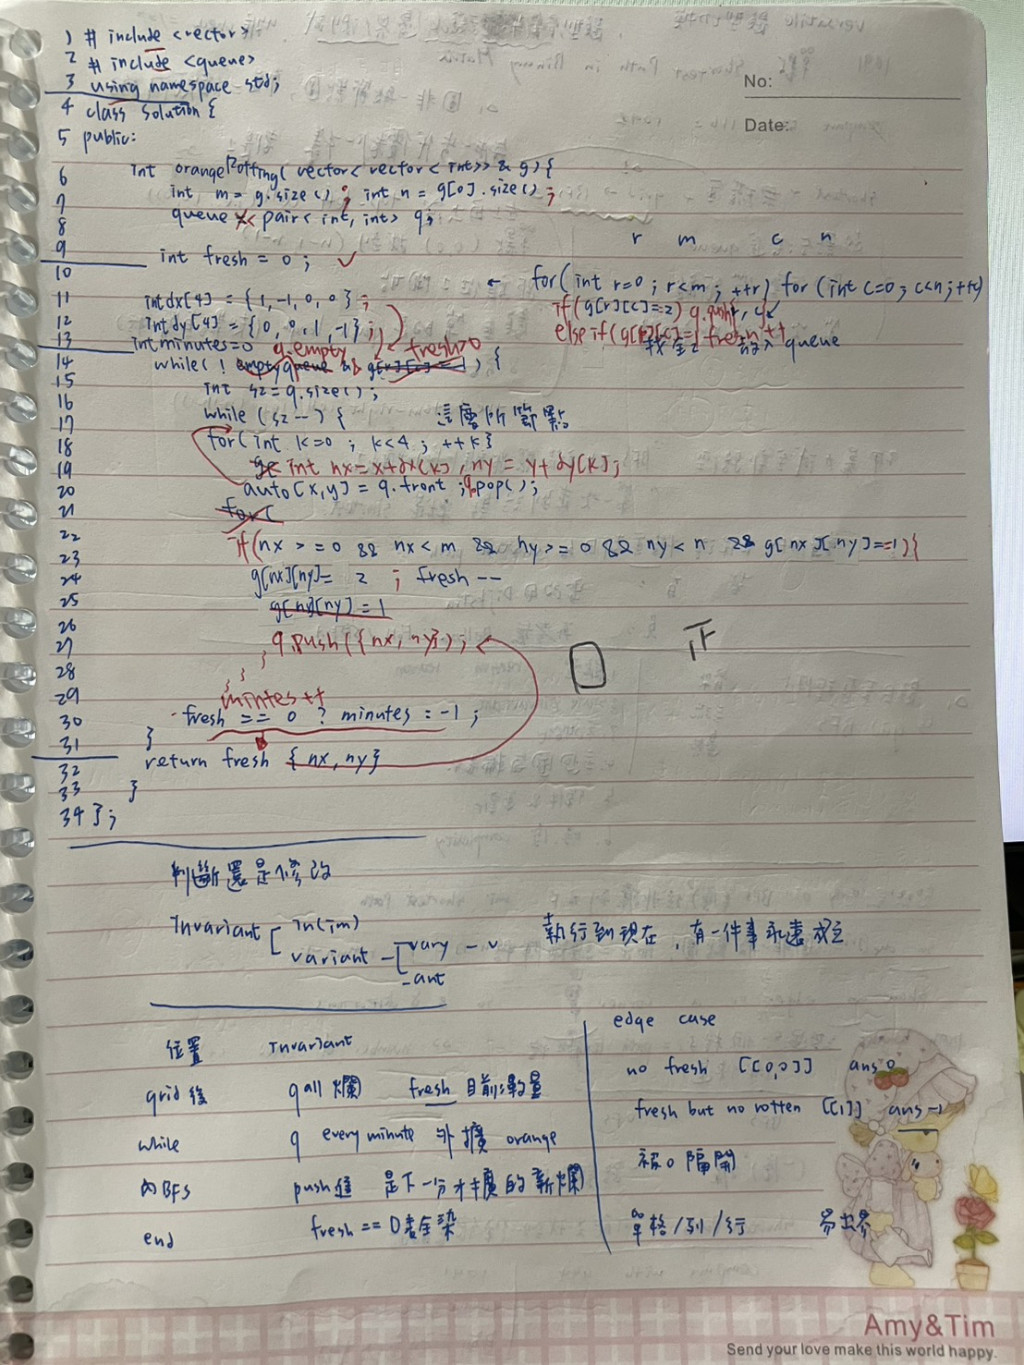 No:
Date:
1 # include <vector>
2 # include <queue>
3 using namespace std;
4 class Solution {
5 public:
6 int orangeRotting( vector< vector< int>> & g) {
7 int m = g.size() ; int n = g[0].size() ;
8 queue < pair< int, int> q;
r m c n
9 int fresh = 0 ; ✓
10 ← for( int r=0 ; r<m ; ++r) for (int c=0 ; c<n ; ++c)
11 int dx[4] = { 1, -1, 0, 0 } ; if( g[r][c]=2) q.push r, c
12 int dy[4] = { 0, 0, 1, -1 } ; else if( g[r][c]=1 fresh++
13 int minutes=0 q.empty fresh>0 找全2 放入 queue
14 while( ! empty queue && g[r][c] = 1 ) {
15 int sz = q.size() ;
16 while ( sz -- ) { 這層所節點
17 for( int k=0 ; k<4 ; ++k }
18 int nx = x+dx(k) , ny = y+dy[k] ;
19 auto [x,y] = q.front ; q.pop() ;
20 for(
21
22 if( nx >= 0 && nx < m && ny >= 0 && ny < n && g[nx][ny]==1) {
23
24 g[nx][ny] = 2 ; fresh --
25 g[nx][ny] = 1
26
27 q.push ({nx, ny}) ;
28 }
29 mintes++
30 fresh == 0 ? minutes : -1 ;
31 }
32 return fresh { nx, ny}
33 }
34 } ;
判斷還是修改
Invariant [ in(im)
variant - [ vary - v
-ant
執行到現在 , 有一件事永遠成立
位置 Invariant
grid後 q all 爛 fresh 目前數量
while q every minute 外擴 orange
內BFS push進 是下一分才擴的新爛
end fresh == 0 表全染
edge case
no fresh [[0,0]] ans 0
fresh but no rotten [[1]] ans -1
被0隔開
單格/列/行 易出界
Amy&Tim
Send your love make this world happy.